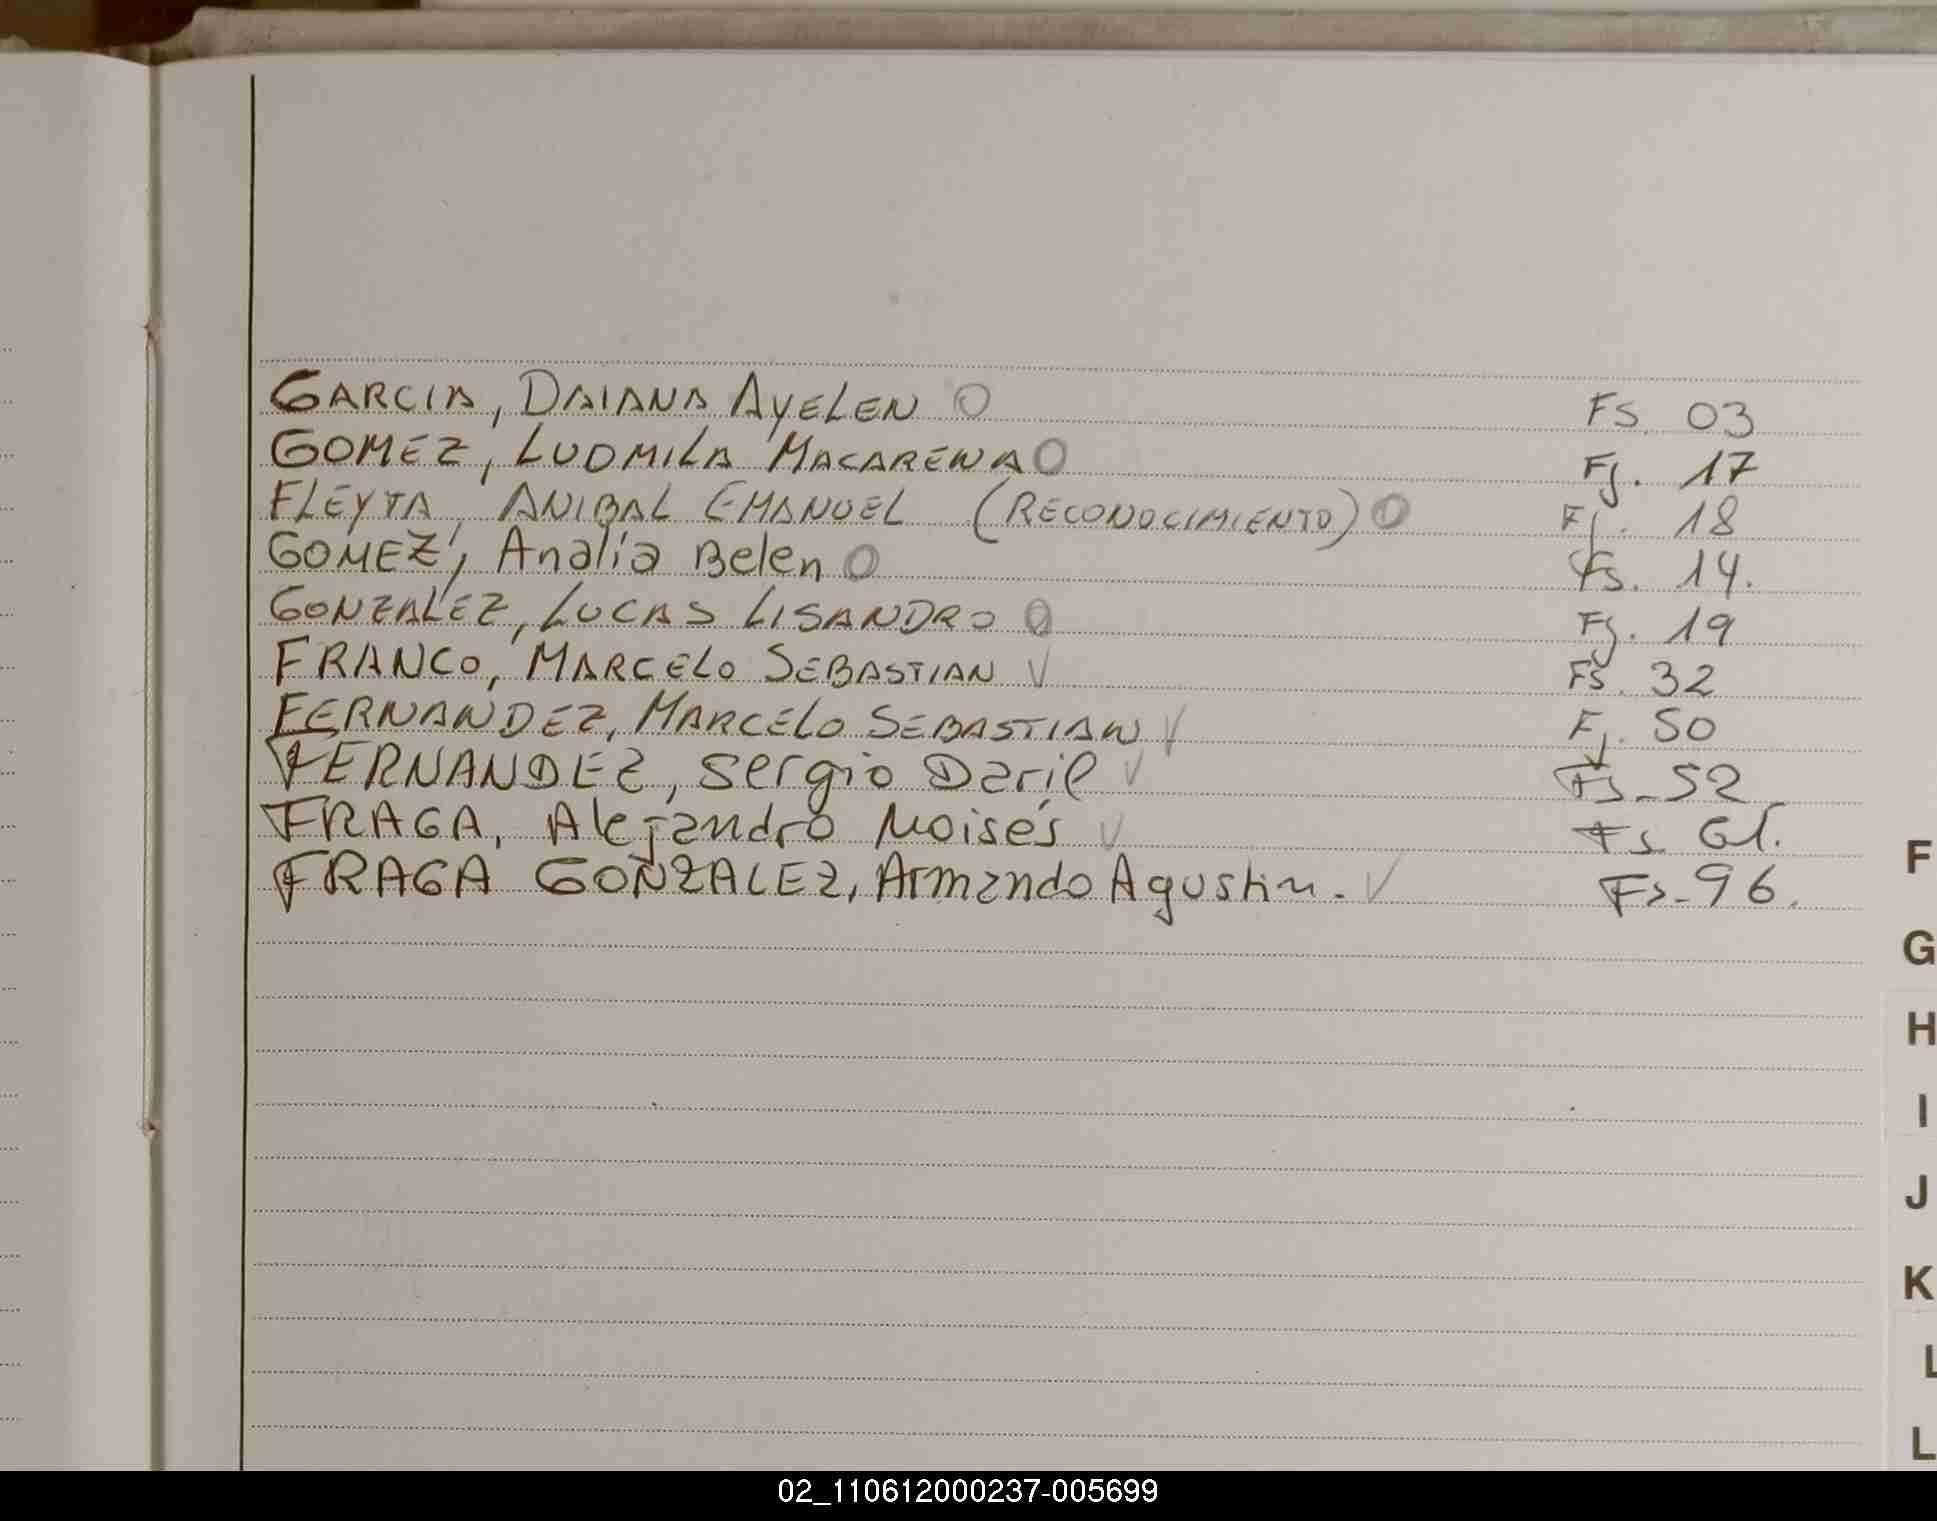 GARCIA, DAIANA AYELEN O FS. 03
GOMEZ, LUDMILA MACARENA O Fj. 17
FLEYTA, ANIBAL EMANUEL (RECONOCIMIENTO) O Fj. 18
GOMEZ, Analia Belen O Fs. 14.
GONZALEZ, LUCAS LISANDRO O Fj. 19
FRANCO, MARCELO SEBASTIAN V FS. 32
FERNANDEZ, MARCELO SEBASTIAN V Fj. 50
FERNANDEZ, Sergio Daril V Fs. 52
FRAGA, Alejandro Moisés V Fs. 61.
FRAGA GONZALEZ, Armando Agustin. V Fs. 96.
F
G
H
I
J
K
L
L
02_110612000237-005699